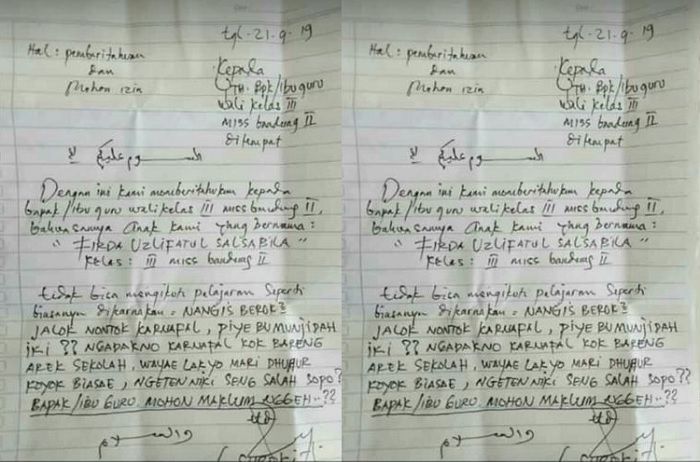 tgl. 21-9-19
Hal : pemberitahuan
dan
Mohon izin
Kepada
YTH. Bpk/ibu guru
wali kelas III
MISS bandung II
ditempat
السلام عليكم
Dengan ini kami memberitahukan kepada
bapak/ibu guru wali kelas III miss bandung II,
bahwasannya anak kami yang bernama :
" FIRDA UZLIFATUL SALSABILA "
kelas : III miss bandung II
tidak bisa mengikuti pelajaran seperti
biasanya dikarnakan = NANGIS BEROK2
JALOK NONTOK KARNAFAL, PIYE BU MUNJIDAH
iki ?? NGADAKNO KARNAFAL KOK BARENG
AREK SEKOLAH, WAYAE LAK YO MARI DHUHUR
KOYOK BIASAE, NGETEN NIKI SENG SALAH SOPO ??
BAPAK/IBU GURU MOHON MAKLUM NGGEH..??
ttd
والسلام
tgl. 21-9-19
Hal : pemberitahuan
dan
Mohon izin
Kepada
YTH. Bpk/ibu guru
wali kelas III
MISS bandung II
ditempat
السلام عليكم
Dengan ini kami memberitahukan kepada
bapak/ibu guru wali kelas III miss bandung II,
bahwasannya anak kami yang bernama :
" FIRDA UZLIFATUL SALSABILA "
kelas : III miss bandung II
tidak bisa mengikuti pelajaran seperti
biasanya dikarnakan = NANGIS BEROK2
JALOK NONTOK KARNAFAL, PIYE BU MUNJIDAH
iki ?? NGADAKNO KARNAFAL KOK BARENG
AREK SEKOLAH, WAYAE LAK YO MARI DHUHUR
KOYOK BIASAE, NGETEN NIKI SENG SALAH SOPO ??
BAPAK/IBU GURU MOHON MAKLUM NGGEH..??
ttd
والسلام